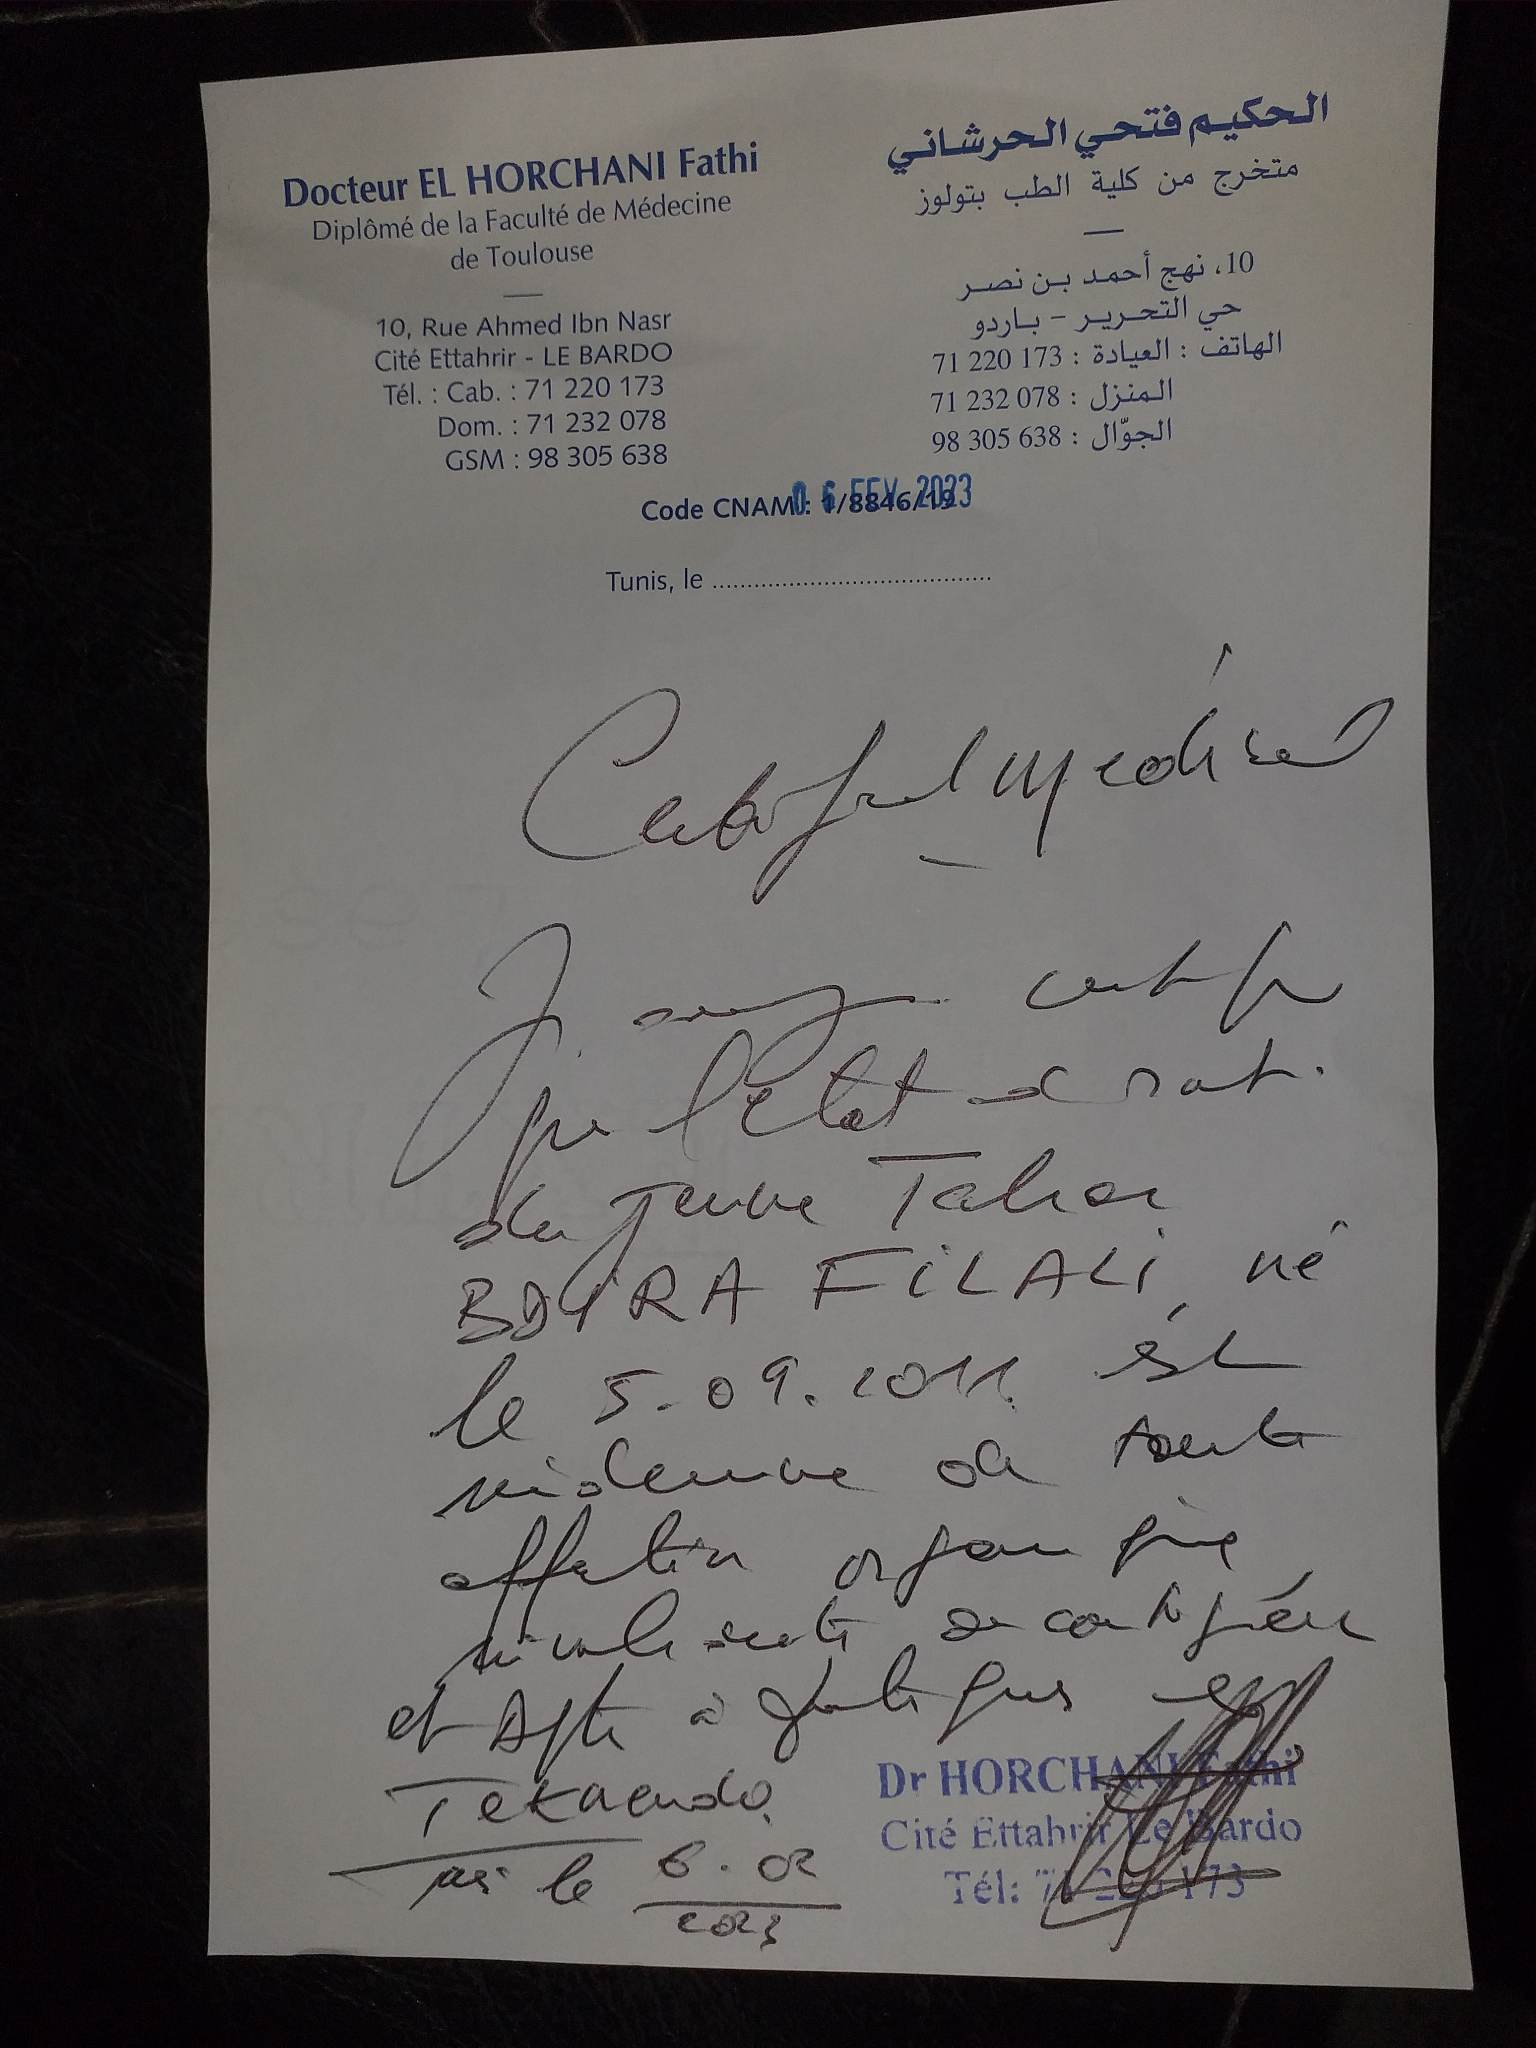 Docteur EL HORCHANI Fathi
Diplômé de la Faculté de Médecine
de Toulouse
10, Rue Ahmed Ibn Nasr
Cité Ettahrir - LE BARDO
Tél. : Cab. : 71 220 173
Dom. : 71 232 078
GSM : 98 305 638
الحكيم فتحي الحرشاني
متخرج من كلية الطب بتولوز
10، نهج أحمد بن نصر
حي التحرير - باردو
الهاتف : العيادة : 173 220 71
المنزل : 078 232 71
الجوّال : 638 305 98
Code CNAM : 1/8846/19
06 FEV 2023
Tunis, le ........................................
Certificat Médical
Je soussigné certifie
que l'état de santé
du jeune Taher
BDIRA FILALI, né
le 5.09.2011 est
indemne de toute
affection organique
et Apte à pratiquer
Tekaendo
le 6.02
2023
Dr HORCHANI Fathi
Cité Ettahrir Le Bardo
Tél: 71 220 173